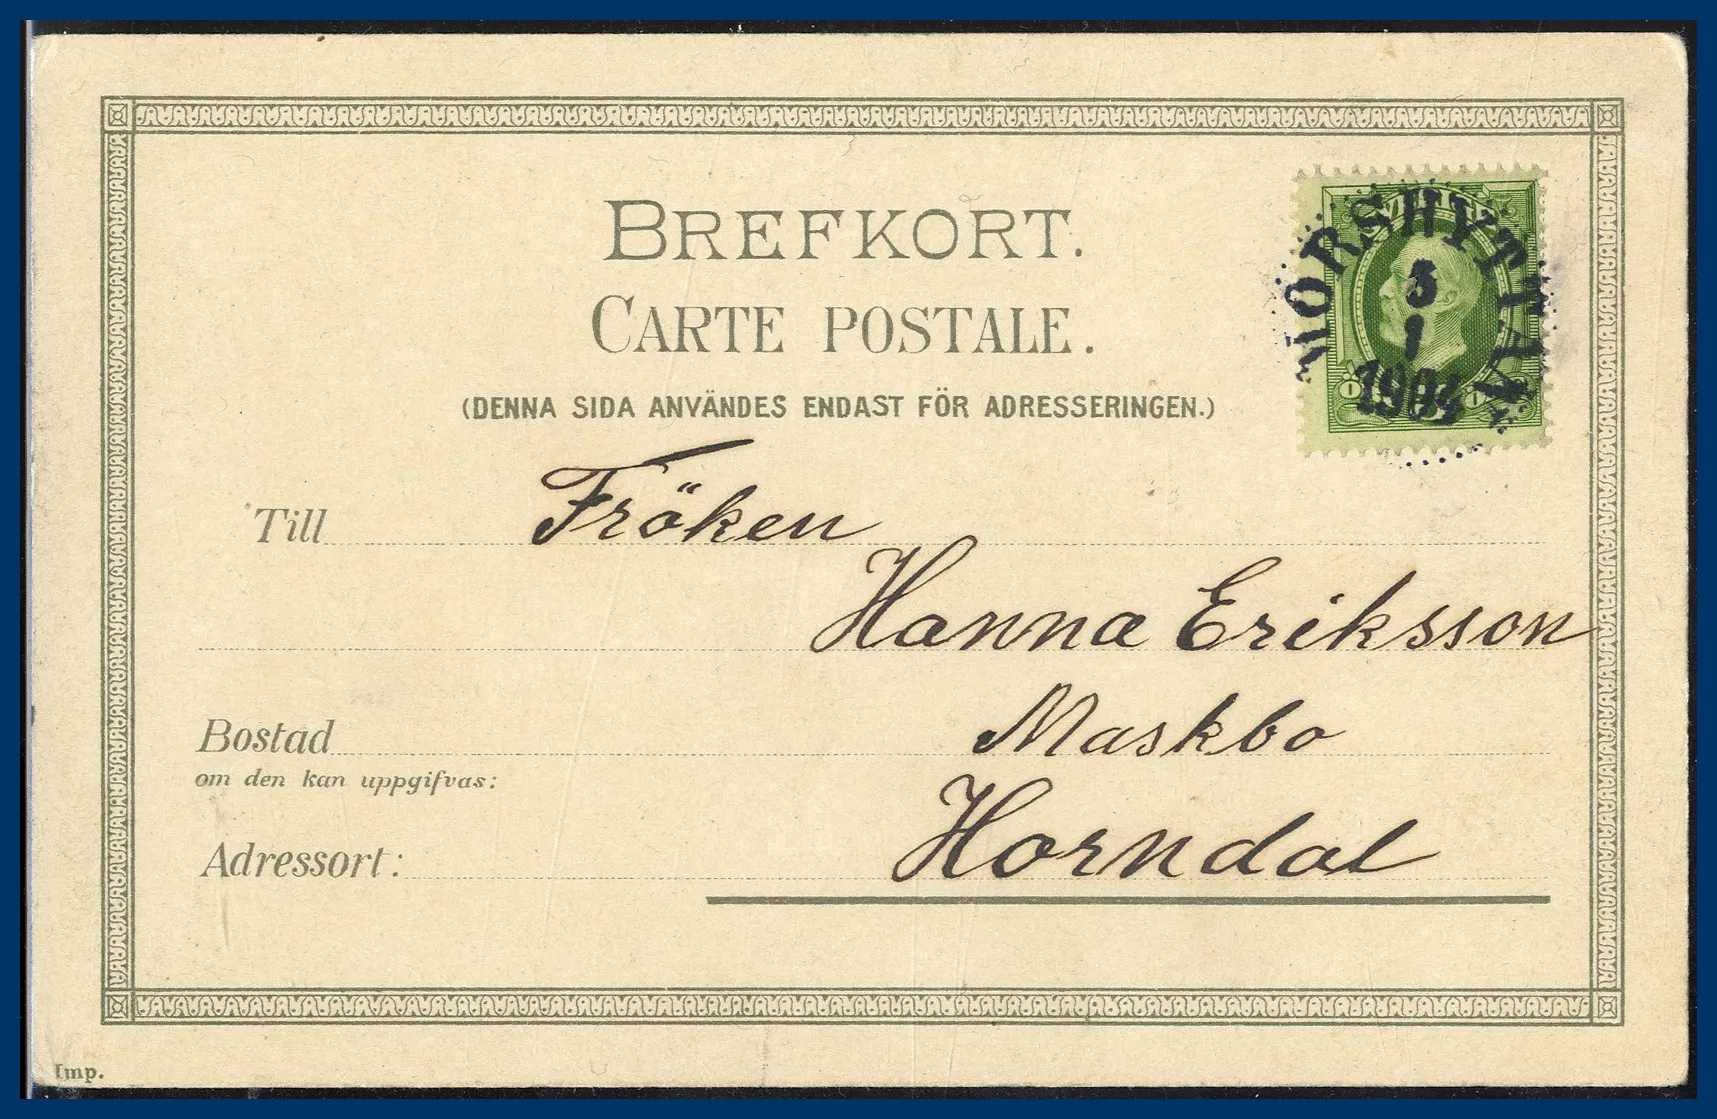 BREFKORT.
CARTE POSTALE.
(DENNA SIDA ANVÄNDES ENDAST FÖR ADRESSERINGEN.)
MORSHYTTAN
3
1
1904
Till Fröken
Hanna Eriksson
Bostad Maskbo
om den kan uppgifvas:
Adressort: Horndal
Imp.